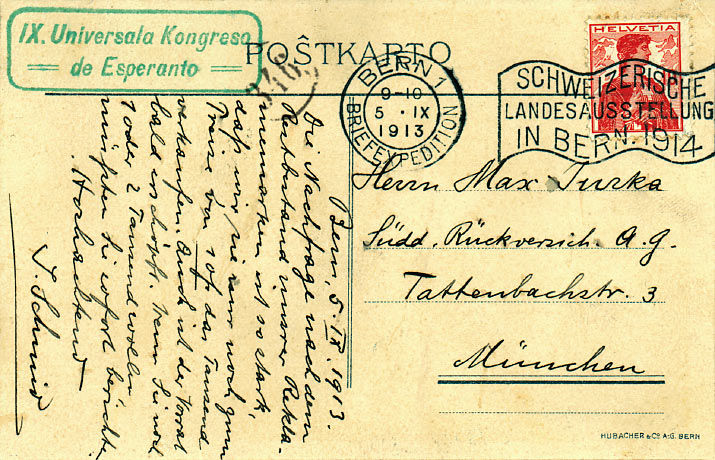 IX. Universala Kongreso
de Esperanto
POŜTKARTO
318
BERN 1
9-10
5 · IX
1913
BRIEFEXPEDITION
HELVETIA
SCHWEIZERISCHE
LANDESAUSSTELLUNG
IN BERN. 1914
Herrn Max Turka
Südd. Rückversich. A. G.
Tattenbachstr. 3
München
HUBACHER & Co A.G. BERN
Bern, 5. IX. 1913.
Die Nachfrage nach dem
Restbestand unsrer Rekla-
memarken ist so stark,
daß wir sie nur noch zum
Preise von das Tausend
verkaufen. Auch ist der Vorrat
bald erschöpft. Wenn Sie noch
1 oder 2 Tausend wollen
müßten Sie sofort berichten.
Hochachtend
J. Schmid